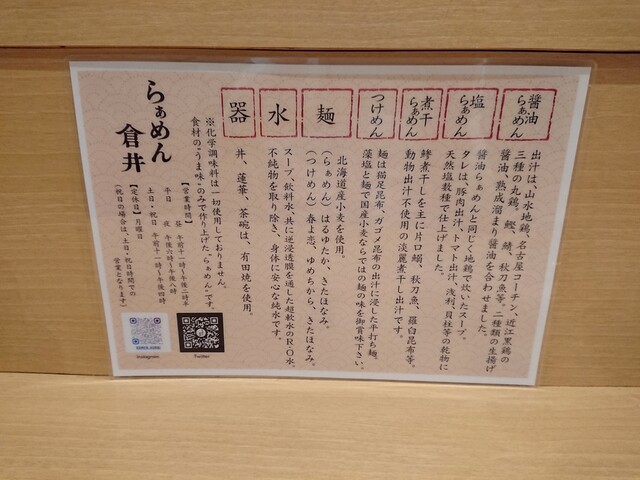 醤油
らぁめん
出汁は、山水地鶏、名古屋コーチン、近江黒鶏の
三種の丸鶏。鰹、鯖、秋刀魚等。二種類の生揚げ
醤油、熟成溜まり醤油を合わせました。
塩
らぁめん
醤油らぁめんと同じく地鶏で炊いたスープ。
タレは、豚肉出汁、トマト出汁、浅利、貝柱等の乾物に
天然塩数種で仕上げました。
煮干
らぁめん
鯵煮干しを主に片口鰯、秋刀魚、羅臼昆布等。
動物出汁不使用の淡麗煮干し出汁です。
つけめん
麺は猫足昆布、ガゴメ昆布の出汁に浸した平打ち麺。
藻塩と麺で国産小麦ならではの麺の味を御賞味下さい。
麺
北海道産小麦を使用。
(らぁめん)はるゆたか、きたほなみ。
(つけめん)春よ恋、ゆめちから、きたほなみ。
水
スープ、飲料水、共に逆浸透膜を通した超軟水のR・O水。
不純物を取り除き、身体に安心な純水です。
器
丼、蓮華、茶碗は、有田焼を使用。
※化学調味料は一切使用しておりません。
食材の"うま味"のみで作り上げた"らぁめん"です。
らぁめん
倉井
【営業時間】
平日 昼 午前十一時〜午後二時半
夜 午後六時〜午後八時
土日・祝日 午前十一時〜午後四時
【定休日】月曜日
(祝日の場合は、土日・祝日時間での
営業となります)
Instagram
Twitter